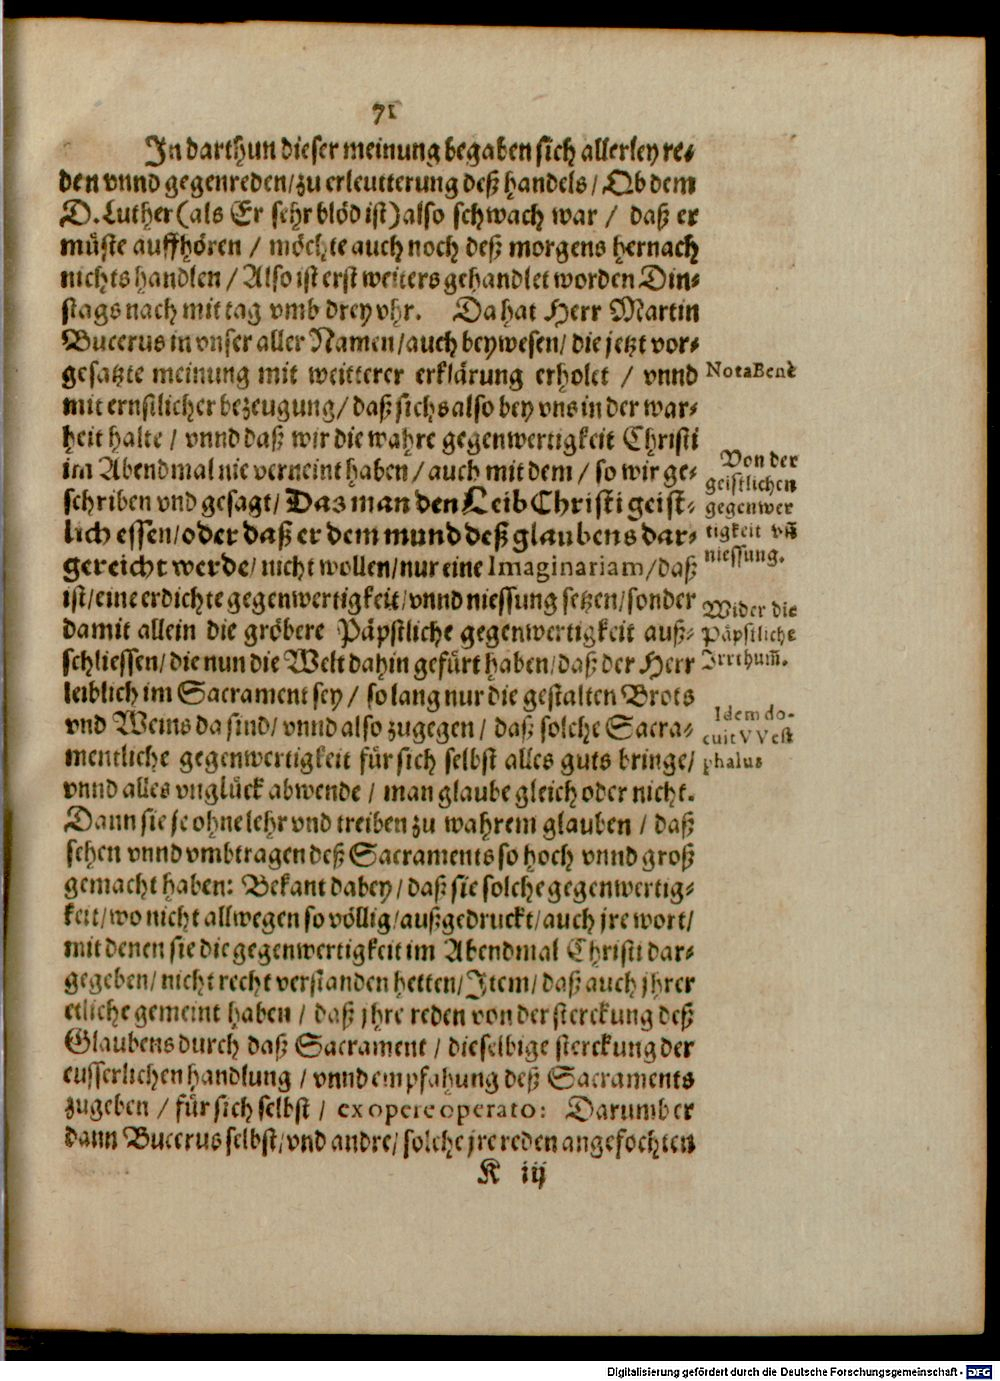 71
In darthun dieser meinung begaben sich allerley re-
den vnnd gegenreden/zu erleutterung deß handels/ Ob dem
D. Luther (als Er sehr blöd ist) also schwach war / daß er
müste auffhören / möchte auch noch deß morgens hernach
nichts handlen / Also ist erst weiters gehandlet worden Din-
stags nach mittag vmb drey vhr. Da hat Herr Martin
Bucerus in vnser aller Namen/auch beywesen/ die jetzt vor-
gesatzte meinung mit weitterer erklärung erholet / vnnd
NotaBenè
mit ernstlicher bezeugung/ daß sichs also bey vns in der war-
heit halte / vnnd daß wir die wahre gegenwertigkeit Christi
im Abendmal nie verneint haben / auch mit dem / so wir ge-
schriben vnd gesagt/ Das man den Leib Christi geist-
lich essen/oder daß er dem mund deß glaubens dar-
gereicht werde/ nicht wollen/nur eine Imaginariam/daß
Von der
geistlichen
gegenwer
tigkeit vñ
niessung.
ist/eine erdichte gegenwertigkeit/vnnd niessung setzen/sonder
damit allein die gröbere Päpstliche gegenwertigkeit auß-
schliessen/ die nun die Welt dahin gefürt haben/daß der Herr
Wider die
Päpstliche
Irrthum̃.
leiblich im Sacrament sey / so lang nur die gestalten Brots
vnd Weins da sind/ vnnd also zugegen / daß solche Sacra-
mentliche gegenwertigkeit für sich selbst alles guts bringe/
Idem do-
cuit VVest
phalus
vnnd alles vnglück abwende / man glaube gleich oder nicht.
Dann sie je ohne lehr vnd treiben zu wahrem glauben / daß
sehen vnnd vmbtragen deß Sacraments so hoch vnnd groß
gemacht haben: Bekant dabey / daß sie solche gegenwertig-
keit/wo nicht allwegen so völlig/außgedruckt/auch jre wort/
mit denen sie die gegenwertigkeit im Abendmal Christi dar-
gegeben/ nicht recht verstanden hetten/Item/ daß auch jhrer
etliche gemeint haben / daß jhre reden von der sterckung deß
Glaubens durch daß Sacrament / dieselbige sterckung der
eusserlichen handlung / vnnd empfahung deß Sacraments
zugeben / für sich selbst / ex opere operato: Darumb er
dann Bucerus selbst/vnd andre/ solche jre reden angefochten
K iij
Digitalisierung gefördert durch die Deutsche Forschungsgemeinschaft - DFG